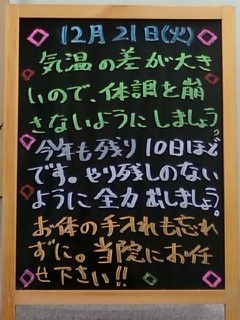 12月21日(火)
気温の差が大き
いので、体調を崩
さないようにしましょう。
今年も残り10日ほど
です。やり残しのない
ように全力出しましょう。
お体の手入れも忘れ
ずに。当院にお任
せ下さい!!